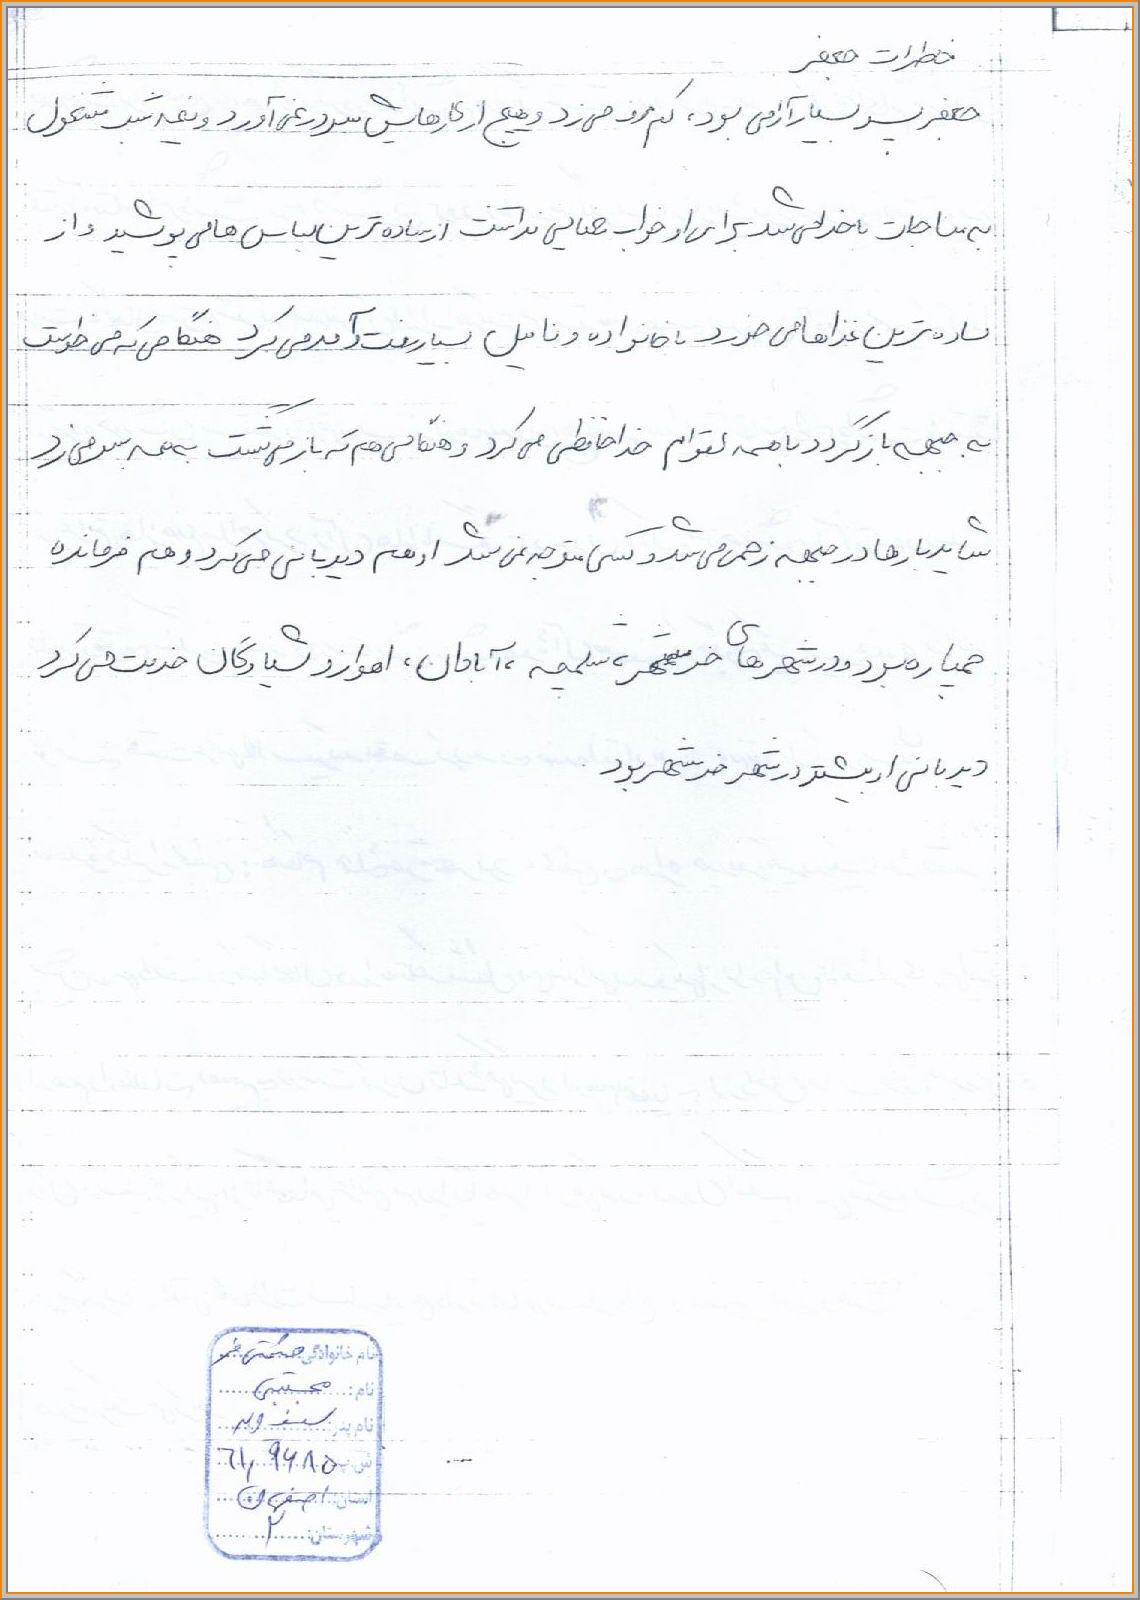 خطرات جعفر
جعفر پسر بسیار آرامی بود، کم حرف می زد و هیچ از کارهایش سر در نمی آورد و نیمه شب مشغول
به مناجات با خدا می شد برای او خواب معنایی نداشت از ساده ترین لباس ها می پوشید و از
ساده ترین غذاها می خورد با خانواده و فامیل بسیار رفت و آمد می کرد هنگامی که می خواست
به جبهه باز گردد با همه اقوام خداحافظی می کرد و هنگامی هم که باز می گشت به همه سر می زد
شاید بارها در جبهه زخمی می شد و کسی متوجه نمی شد او هم دیدبانی می کرد و هم فرمانده
خمپاره بود و در شهر های خرمشهر، شلمچه، آبادان، اهواز و شیاوگان خدمت می کرد
دیدبانی او بیشتر در شهر خرمشهر بود.
نام خانوادگی:
نام: مجتبی
نام پدر:
ش پ: ۶۱۰۹۶۸۵
استان: اصفهان
شهرستان: ۲